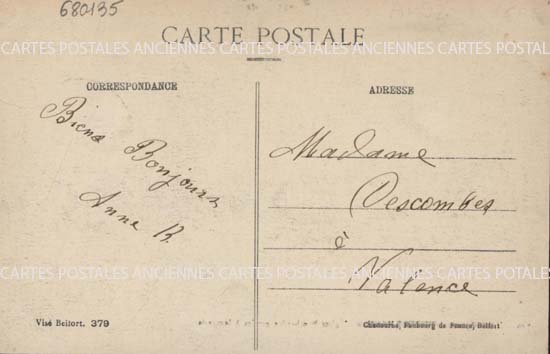 680135
CARTE POSTALE
CARTES POSTALES ANCIENNES CARTES POSTALES ANCIENNES CARTES POSTALES
CORRESPONDANCE
Biens
Bonjours
Anne B.
ADRESSE
Madame
Descombes
à
Valence
CARTES POSTALES ANCIENNES CARTES POSTALES ANCIENNES CARTES POSTALES
Visé Belfort. 379
Chadourne, Faubourg de France, Belfort